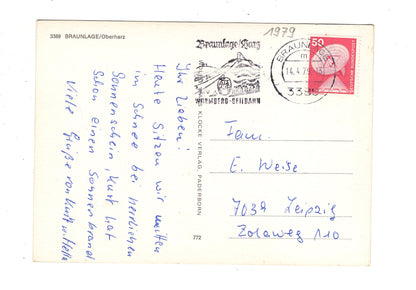 3389 BRAUNLAGE/Oberharz
1979
Braunlage/Harz
WURMBERG-SEILBAHN
BRAUNLAGE
14.4.79
50
DEUTSCHE BUNDESPOST
Ihr Lieben!
Heute sitzen wir mitten
im Schnee bei herrlichen
Sonnenschein, Kurt hat
schon einen Sonnenbrand
Viele Grüße von Kurt u. Hella
KLOCKE VERLAG, PADERBORN
772
Fam.
E. Weise
703 Leipzig
Zolaweg 110